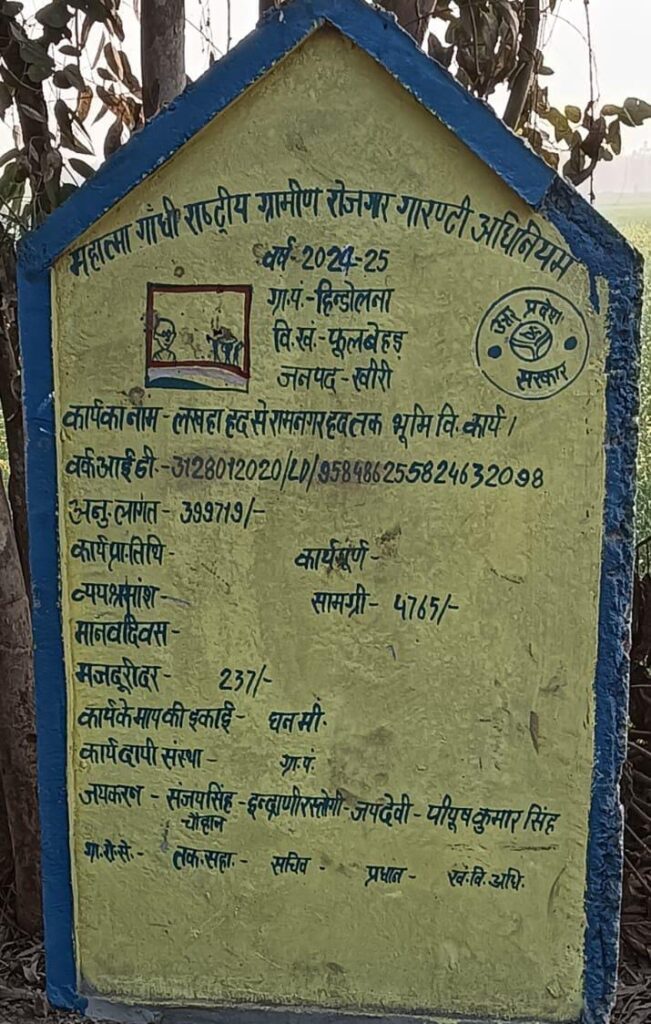 महात्मा गाँधी राष्ट्रीय ग्रामीण रोजगार गारण्टी अधिनियम
वर्ष- 2024-25
ग्रा.पं.- हिन्डोलना
वि.खं.- फूलबेहड़
जनपद - खीरी
उत्तर प्रदेश
सरकार
कार्य का नाम - लखहा हद से रामनगर हद तक भूमि वि. कार्य।
वर्क आई डी.- 3128012020/LD/958486255824632098
अनु. लागत - 399719/-
कार्य प्रा. तिथि - कार्य पूर्ण -
व्यय श्रमांश - सामग्री - 4765/-
मानव दिवस -
मजदूरी दर - 237/-
कार्य के माप की इकाई - घन मी.
कार्यदायी संस्था - ग्रा.पं.
जयकरन - संजय सिंह - इन्द्राणी रस्तोगी - जयदेवी - पीयूष कुमार सिंह
चौहान
ग्रा.रो.से.- तक. सहा.- सचिव - प्रधान - खं.वि.अधि.